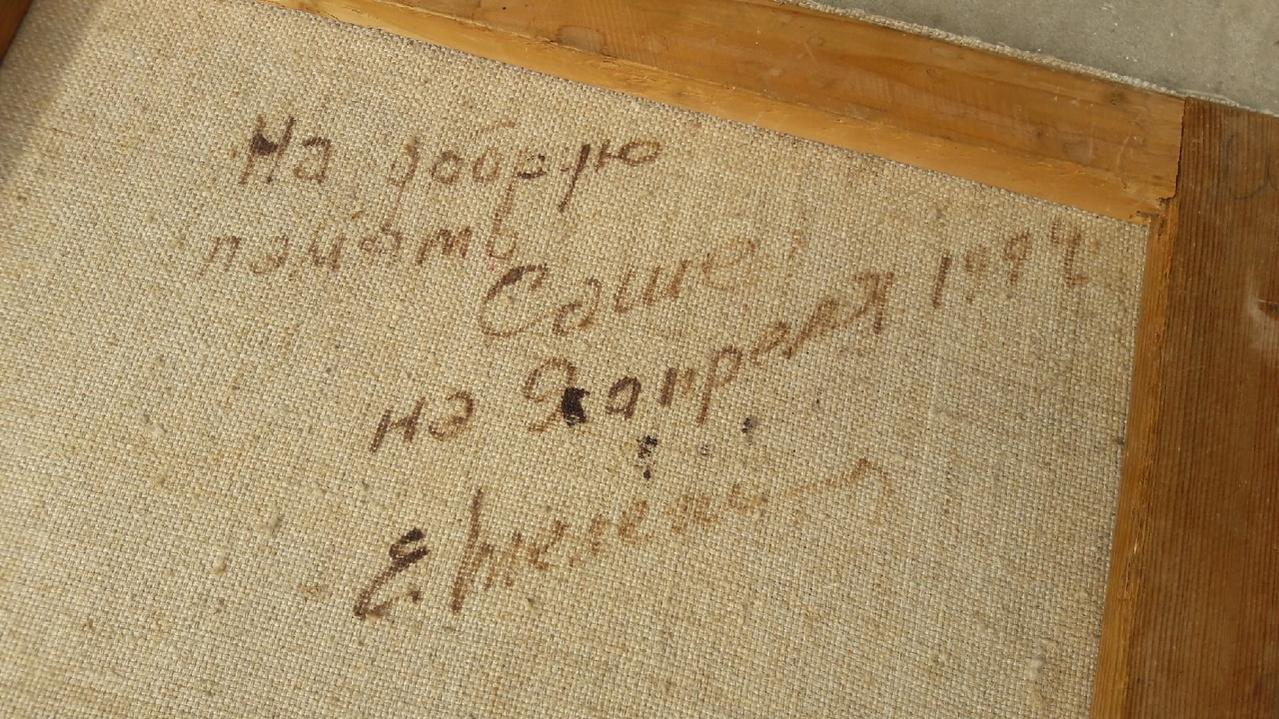 На добрую
память
Саше!
на 9 апреля 1994
Е.